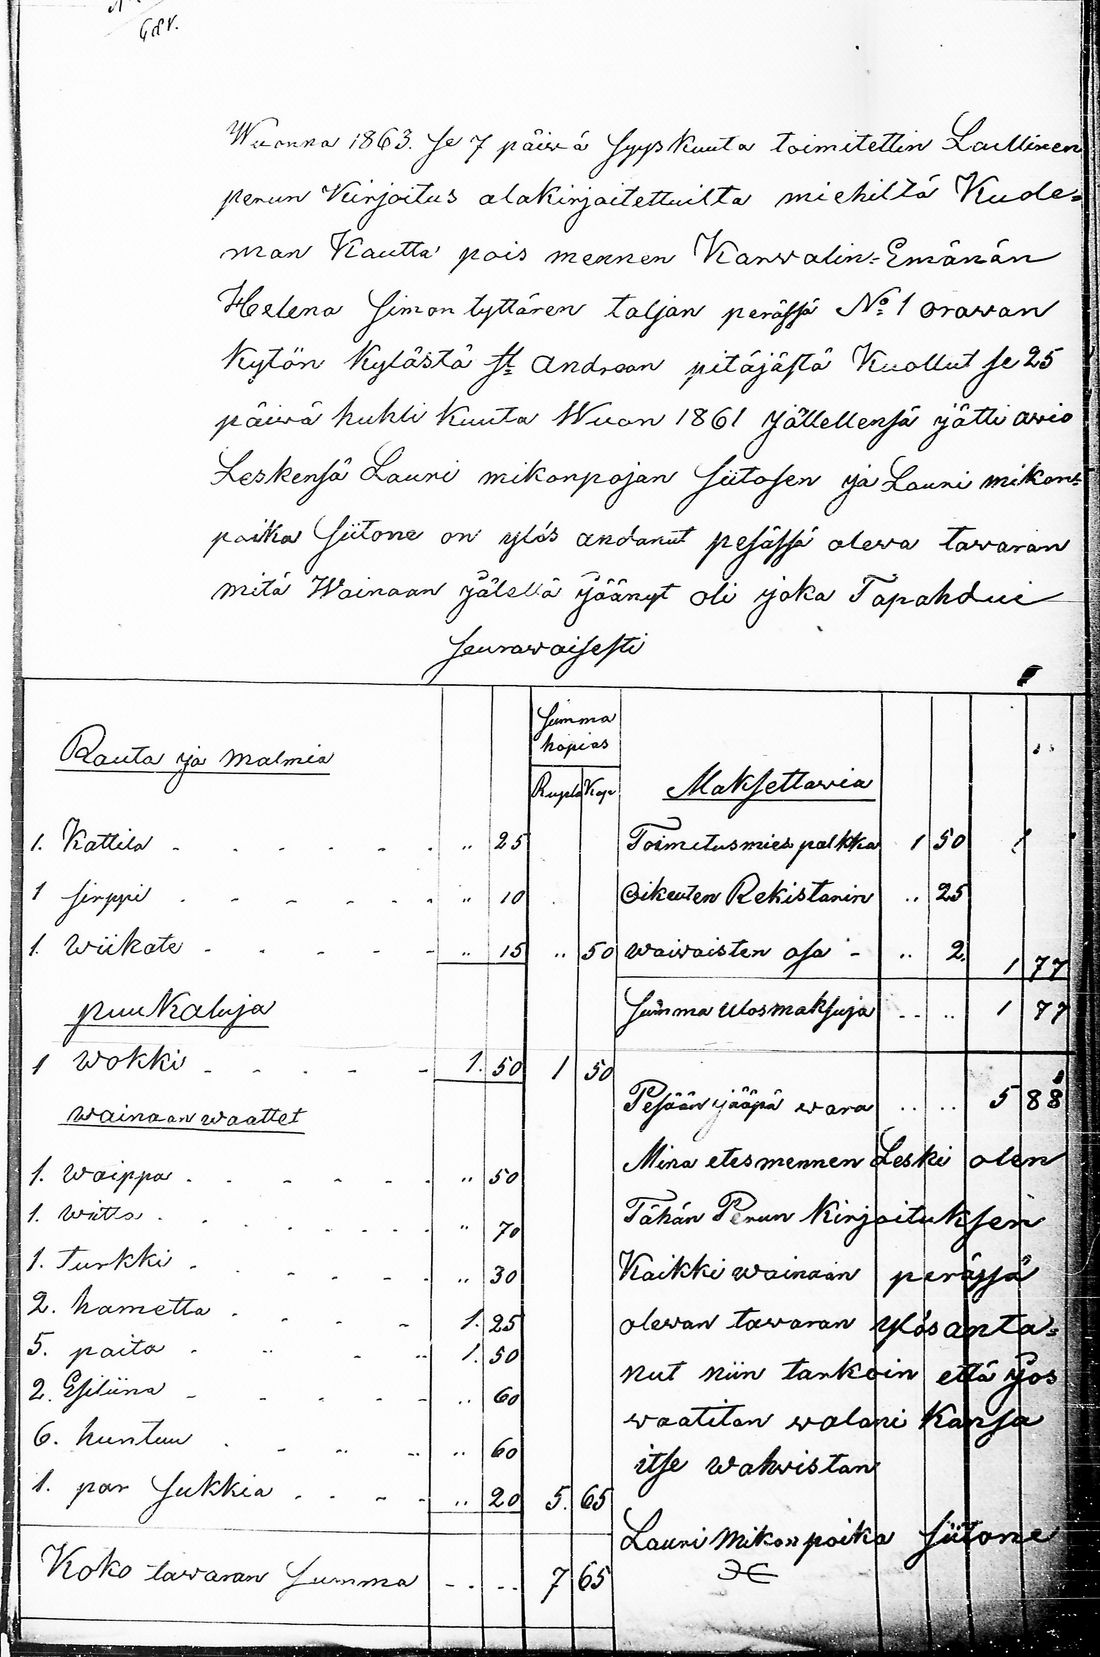 681.
Wuonna 1863. se 7 päiwä syyskuuta toimitettin Laillinen
perun Kirjoitus alakirjoitettuilta miehiltä Kuole=
man Kautta pois mennen Karwalin=Emänän
Helena Simon tyttären taljan perässä No 1 orawan
Kytön Kylästä St Andrean pitäjästä Kuollut se 25
päiwä huhti Kuuta Wuon 1861 jällellensä jätti awio
Leskensä Lauri mikonpojan Siitosen ja Lauri mikon=
poika Siitone on ylös andanut pesässä olewa tawaran
mitä Wainaan jälellä jäänyt oli joka Tapahdui
seurawaisesti
Rauta ja malmia
Summa
hopias
Rupla Kop
1. Kattila - - - - - - .. 25
1 sirppi - - - - - - .. 10
1. wiikate - - - - - .. 15 .. 50
puu Kaluja
1 wokki - - - - - 1. 50 1 50
wainaan waattet
1. waippa - - - - - - .. 50
1. wiitta - - - - - - .. 70
1. turkki - - - - - - .. 30
2. hametta - - - - 1. 25
5. paita - .. - .. 1. 50
2. Esiliina - - - - - .. 60
6. huntuu - - .. .. .. 60
1. par sukkia - - - - .. 20 5. 65
Koko tawaran summa - - .. .. 7 65
Maksettawia
Toimitusmies palkka 1 50
oikeuten Rekistarin .. 25
waiwaisten osa - .. 2. 1 77
Summa ulosmaksuja - - .. 1 77
Pesään jääpä wara .. .. 5 88
Minä etesmennen Leski olen
Tähän Perun Kirjoituksen
Kaikki wainaan perässä
olewan tawaran ylös anta=
nut niin tarkoin että jos
waatitan walani Kansa
itse wahwistan
Lauri Mikonpoika Siitone